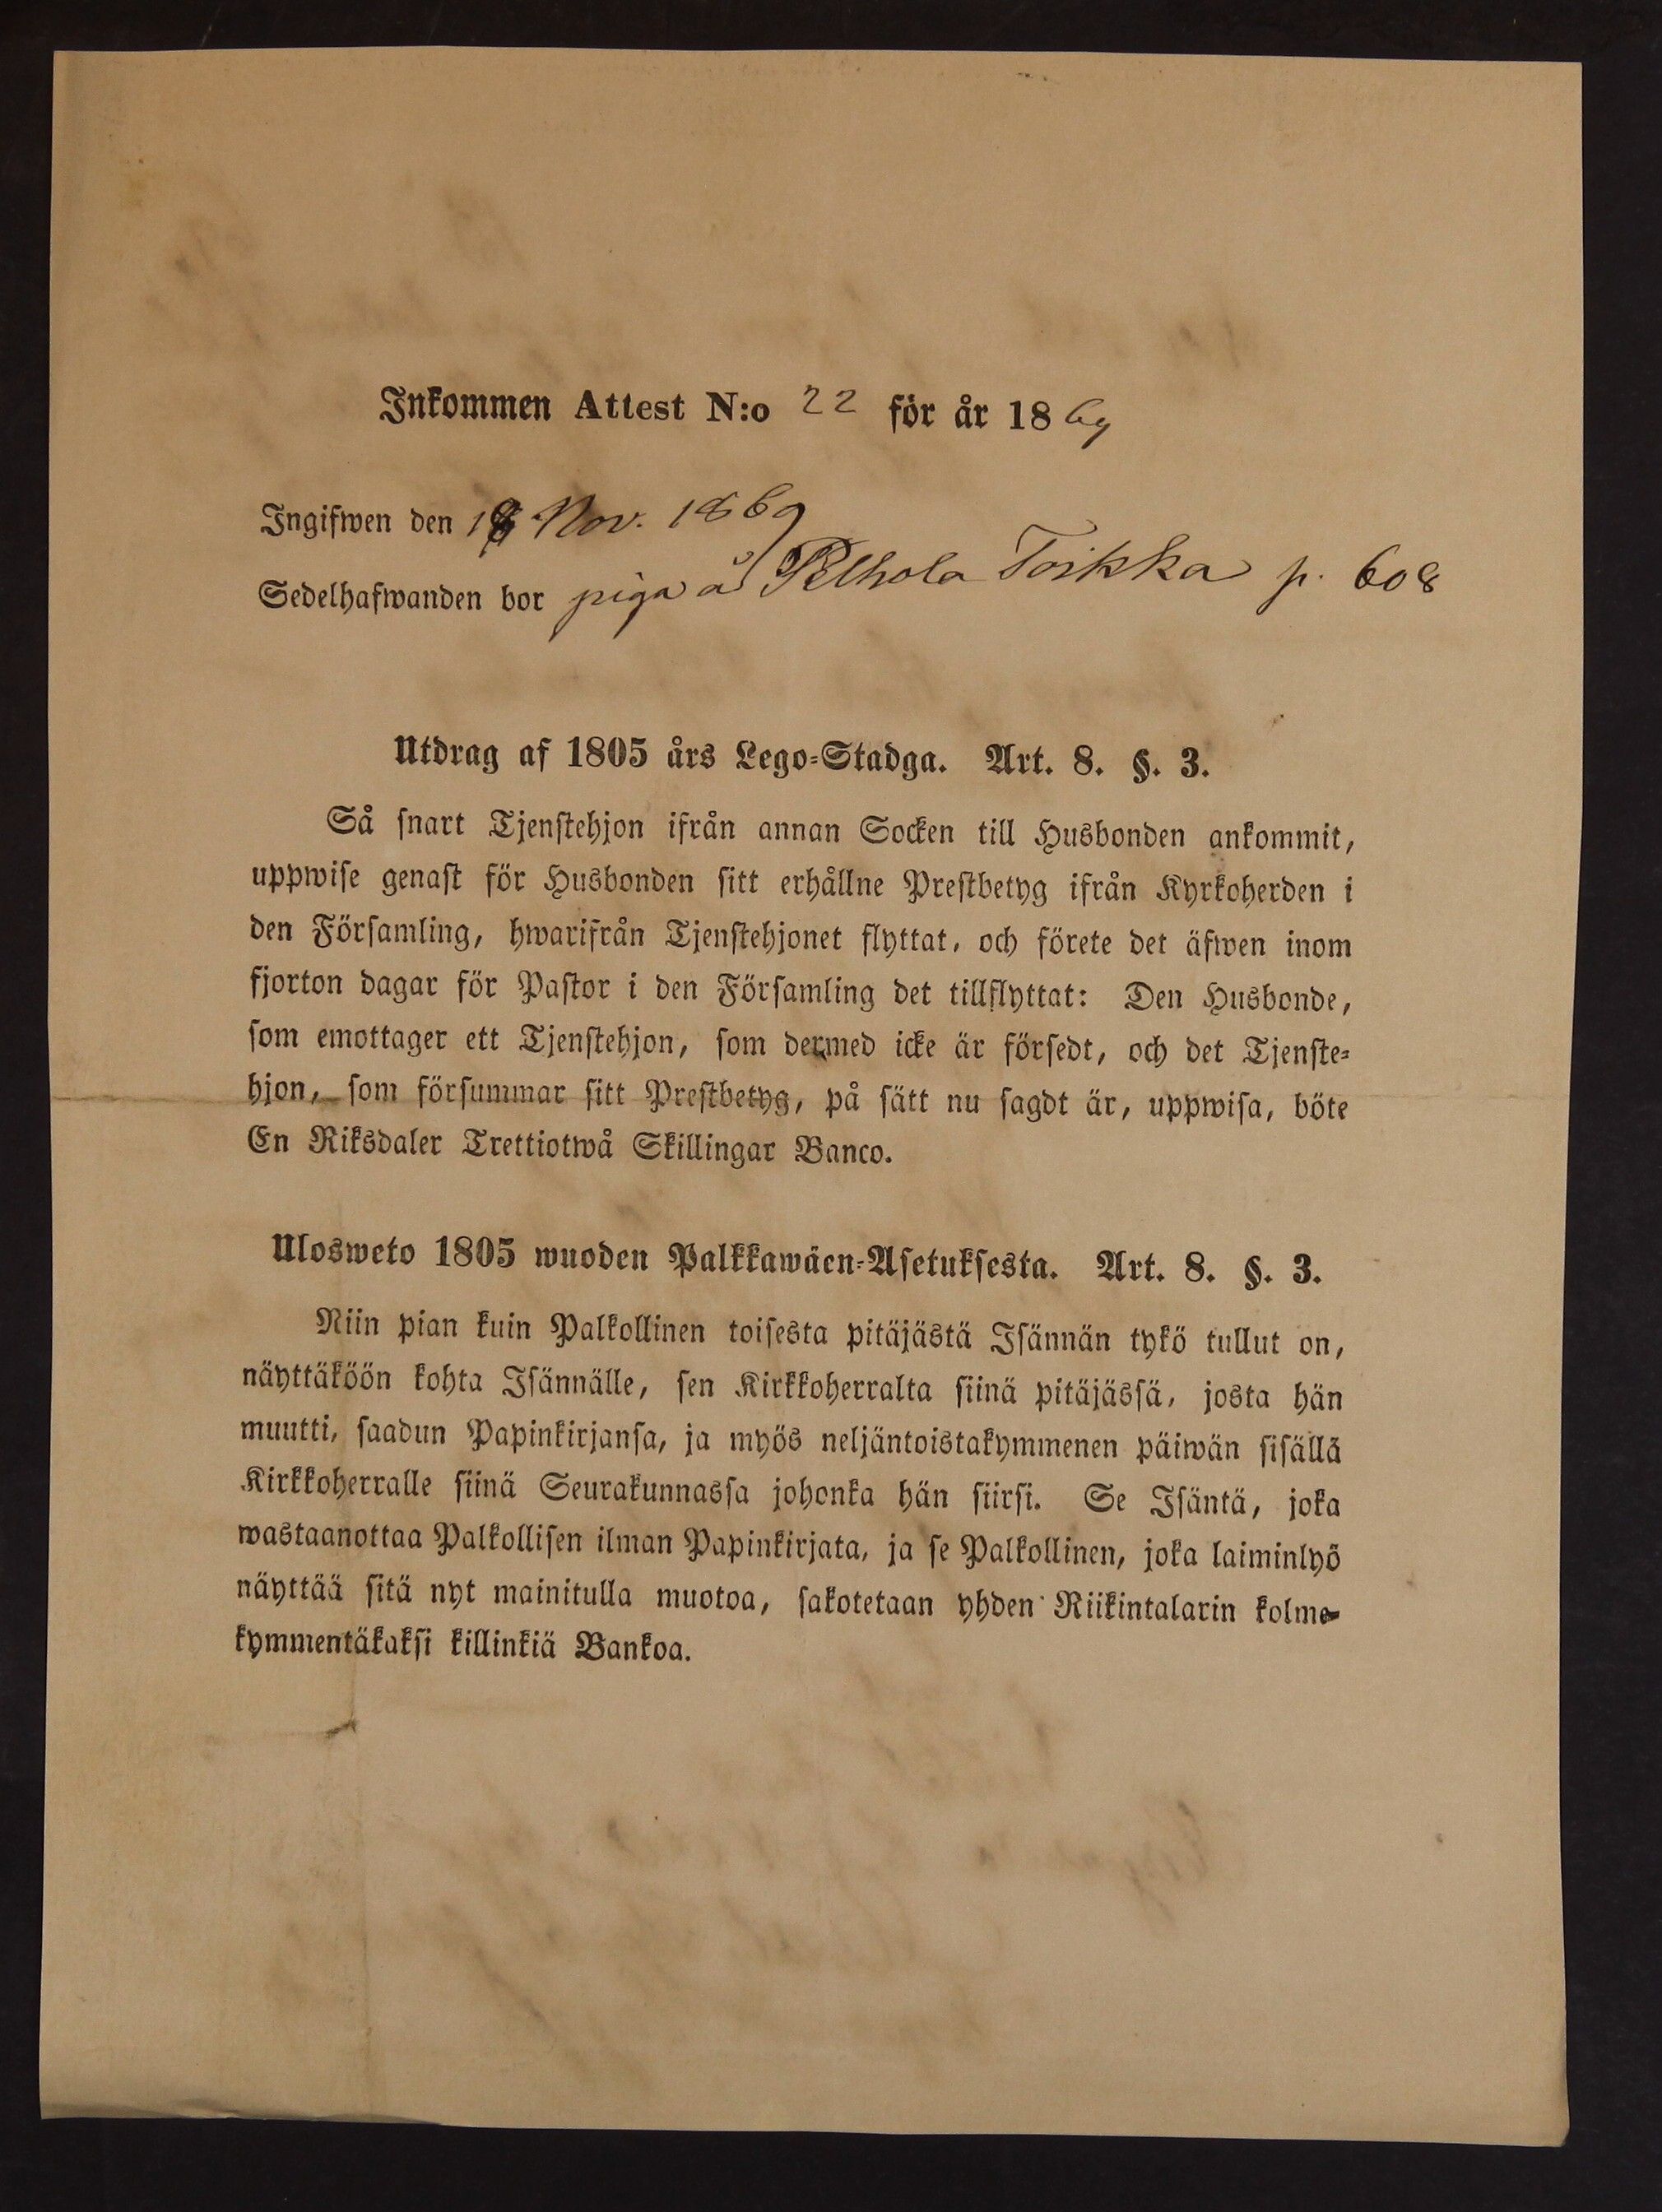 Inkommen Attest N:o 22 för år 1869
Ingifwen den 18 Nov. 1869
Sedelhafwanden bor piga å Pelhola Toikka p. 608
Utdrag af 1805 års Lego-Stadga. Art. 8. §. 3.
Så snart Tjenstehjon ifrån annan Socken till Husbonden ankommit,
uppwise genast för Husbonden sitt erhållne Prestbetyg ifrån Kyrkoherden i
den Församling, hwarifrån Tjenstehjonet flyttat, och förete det äfwen inom
fjorton dagar för Pastor i den Församling det tillflyttat: Den Husbonde,
som emottager ett Tjenstehjon, som dermed icke är försedt, och det Tjenste-
hjon, som försummar sitt Prestbetyg, på sätt nu sagdt är, uppwisa, böte
En Riksdaler Trettiotwå Skillingar Banco.
Ulosweto 1805 wuoden Palkkawäen-Asetuksesta. Art. 8. §. 3.
Niin pian kuin Palkollinen toisesta pitäjästä Isännän tykö tullut on,
näyttäköön kohta Isännälle, sen Kirkkoherralta siinä pitäjässä, josta hän
muutti, saadun Papinkirjansa, ja myös neljäntoistakymmenen päiwän sisällä
Kirkkoherralle siinä Seurakunnassa johonka hän siirsi. Se Isäntä, joka
wastaanottaa Palkollisen ilman Papinkirjata, ja se Palkollinen, joka laiminlyö
näyttää sitä nyt mainitulla muotoa, sakotetaan yhden Riikintalarin kolme-
kymmentäkaksi killinkiä Bankoa.